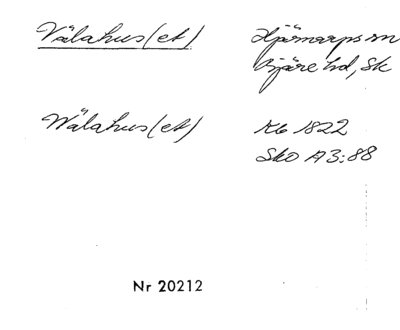 Välahus(et) Hjärnarps sn
Bjäre hd, Sk
Wälahus(et) Kb 1822
Sko A3:88
Nr 20212